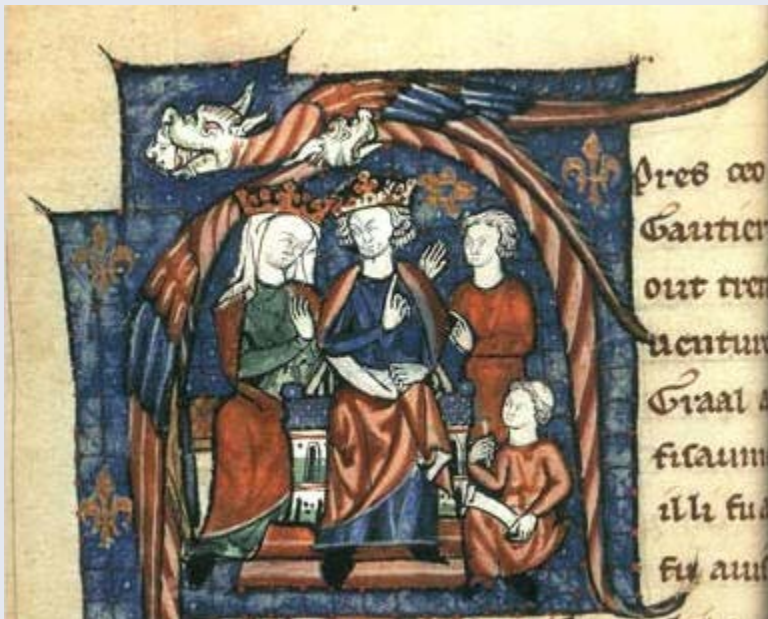 pres ceo
Gautier
out tre
uenture
Graal a
fisaum
illi fu
fu auis